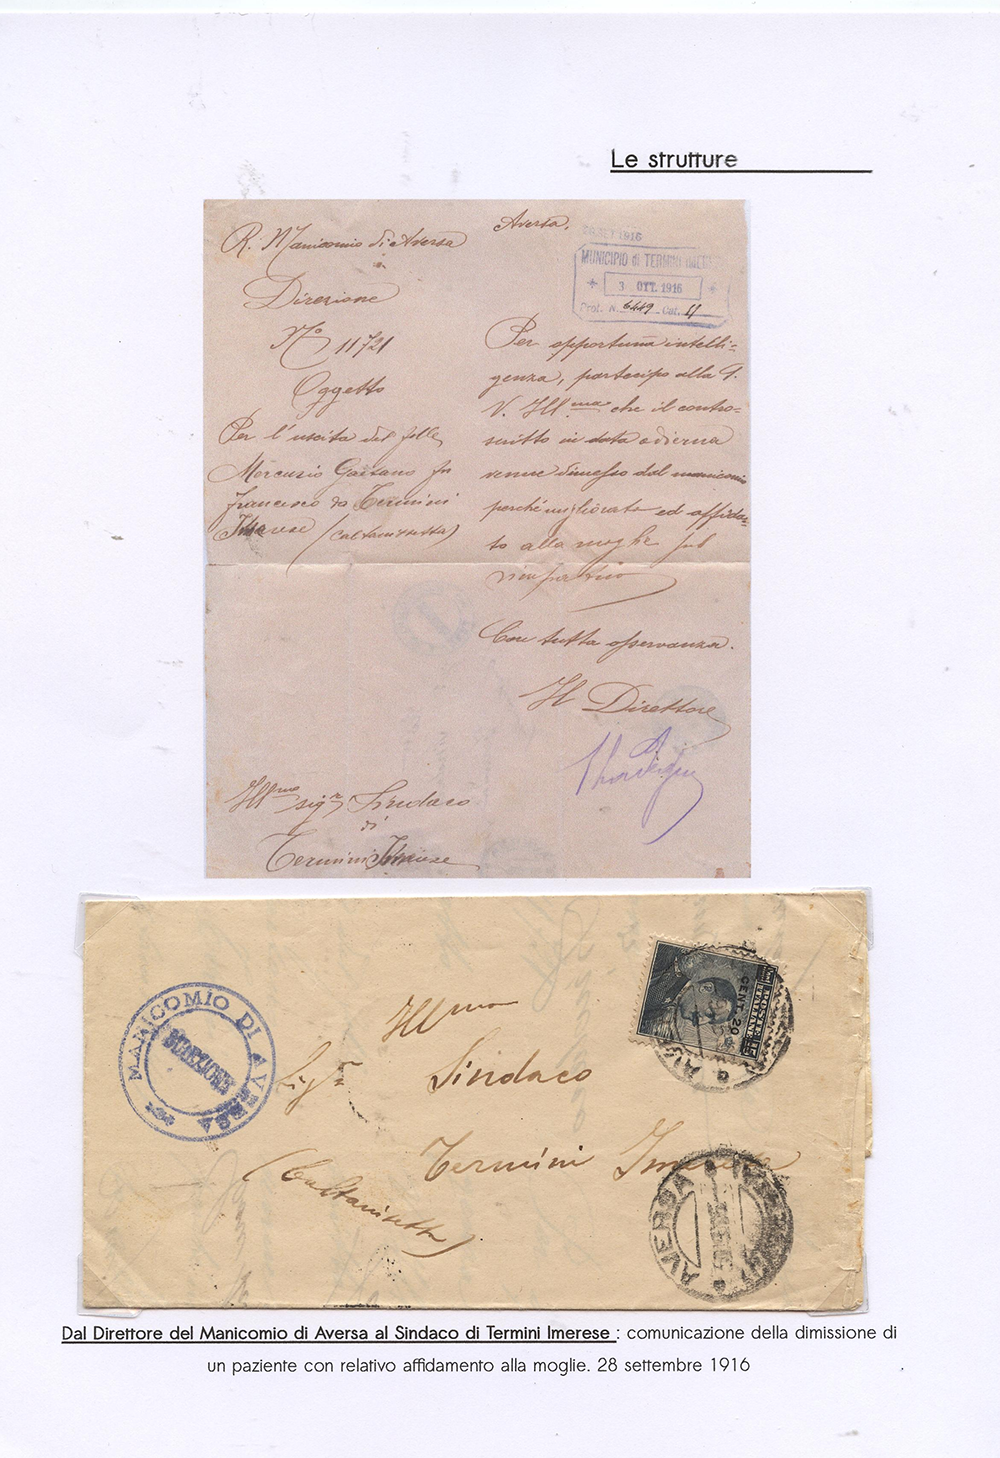 Le strutture
R. Manicomio di Aversa
Direzione
N° 11721
Oggetto
Per l'uscita del folle
Mercurio Gaetano fu
Francesco da Termini
Imerese (Caltanissetta)
Illmo sigr Sindaco
di
Termini Imerese
Aversa,
28 SET 1916
MUNICIPIO di TERMINI IMER
3 OTT. 1916
Prot. N. 6449 Cat. II
Per opportuna intelli-
genza, partecipo alla S.
V. Ill.ma che il contro-
scritto in data odierna
venne dimesso dal manicomio
perché migliorato ed affida-
to alla moglie sul
Con tutta osservanza.
Il Direttore
MANICOMIO DI AVERSA
DIREZIONE
Illmo
Sigr Sindaco
Termini Imerese
(Caltanissetta)
POSTE ITALIANE
CENT. 20
AVERSA
Dal Direttore del Manicomio di Aversa al Sindaco di Termini Imerese : comunicazione della dimissione di
un paziente con relativo affidamento alla moglie. 28 settembre 1916